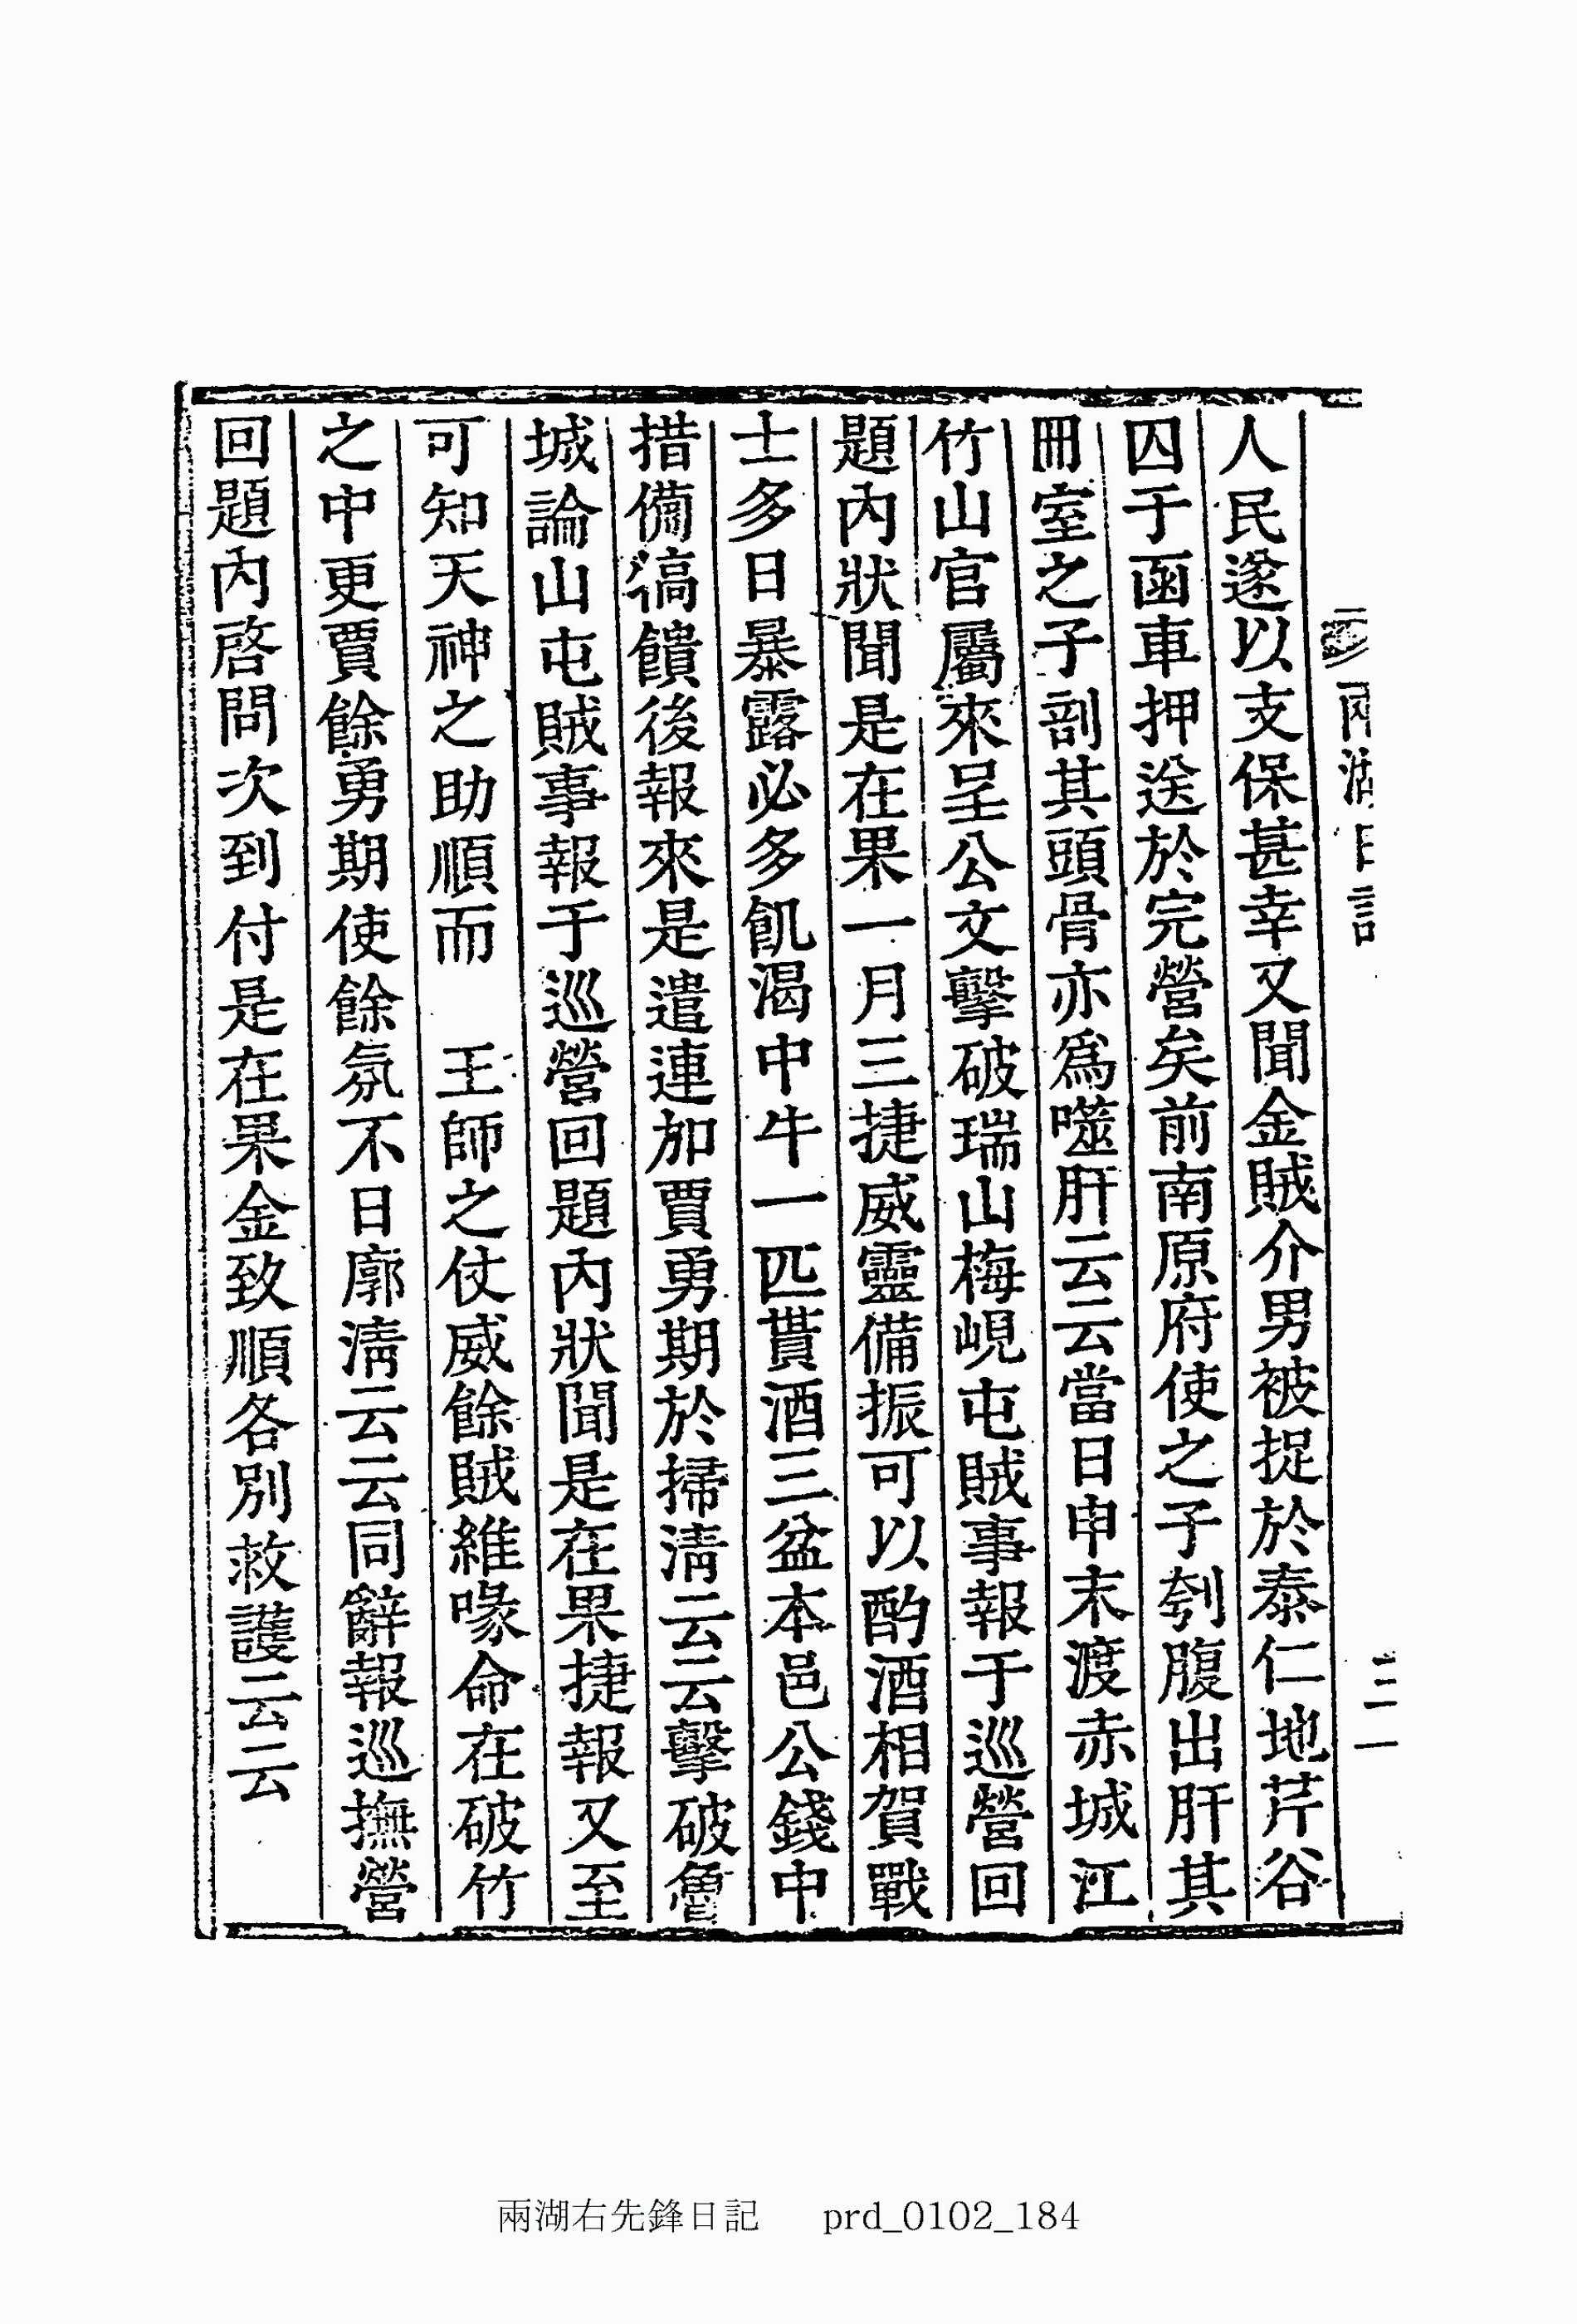 兩湖日記
三一
人民遂以支保甚幸又聞金賊介男被捉於泰仁地芹谷
囚于函車押送於完營矣前南原府使之子刳腹出肝其
冊室之子剖其頭骨亦爲噬肝云云當日申末渡赤城江
竹山官屬來呈公文擊破瑞山梅峴屯賊事報于巡營回
題內狀聞是在果一月三捷威靈備振可以酌酒相賀戰
士多日暴露必多飢渴中牛一匹貰酒三盆本邑公錢中
措備犒饋後報來是遣連加賈勇期於掃淸云云擊破魯
城論山屯賊事報于巡營回題內狀聞是在果捷報又至
可知天神之助順而　王師之仗威餘賊維喙命在破竹
之中更賈餘勇期使餘氛不日廓淸云云同辭報巡撫營
回題內啓問次到付是在果金致順各別救護云云
兩湖右先鋒日記 prd_0102_184